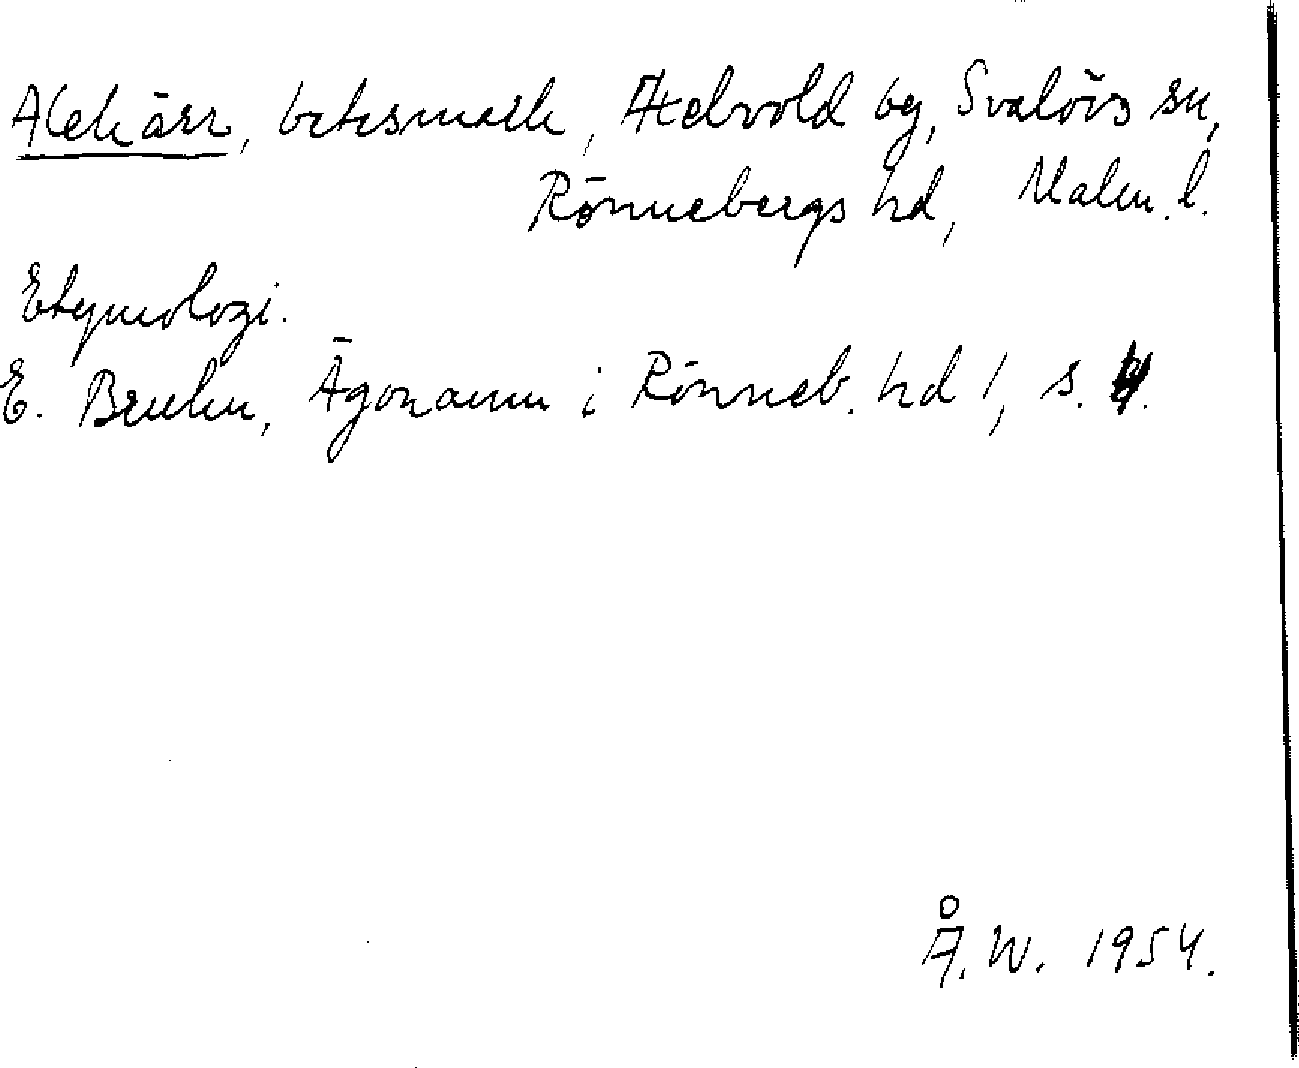 Alekärr, betesmark, Axelvold by, Svalövs sn,
Rönnebergs hd, Malm. l.
Etymologi.
E. Bruhn, Ägonamn i Rönneb. hd 1, s. 4.
Å. W. 1954.